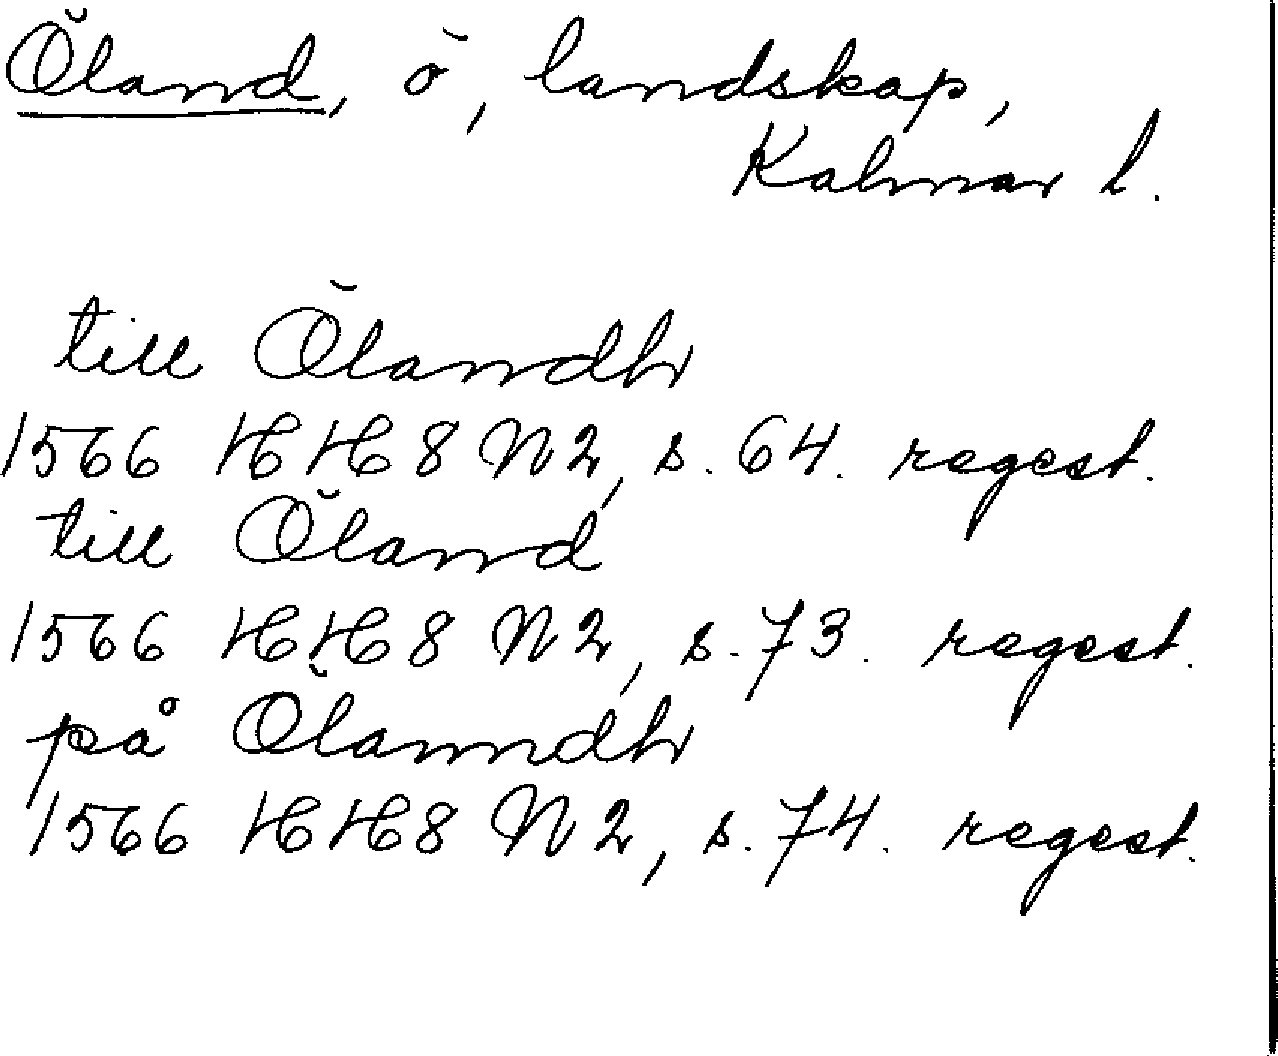 Öland, ö, landskap,
Kalmar l.
till Ölandh
1566 HH8 N2, s. 64. regest.
till Öland
1566 HH8 N2, s. 73. regest.
på Ölanndh
1566 HH8 N2, s. 74. regest.